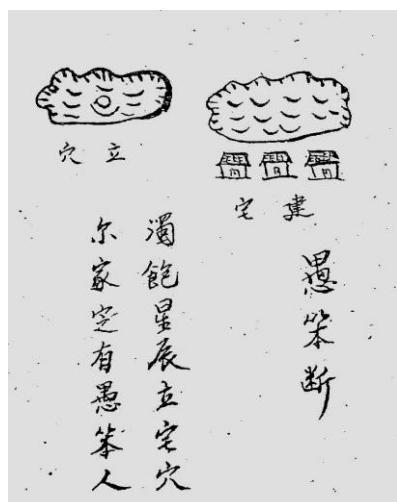 建宅
立穴
愚笨断
濁飽星辰立宅穴
尔家定有愚笨人